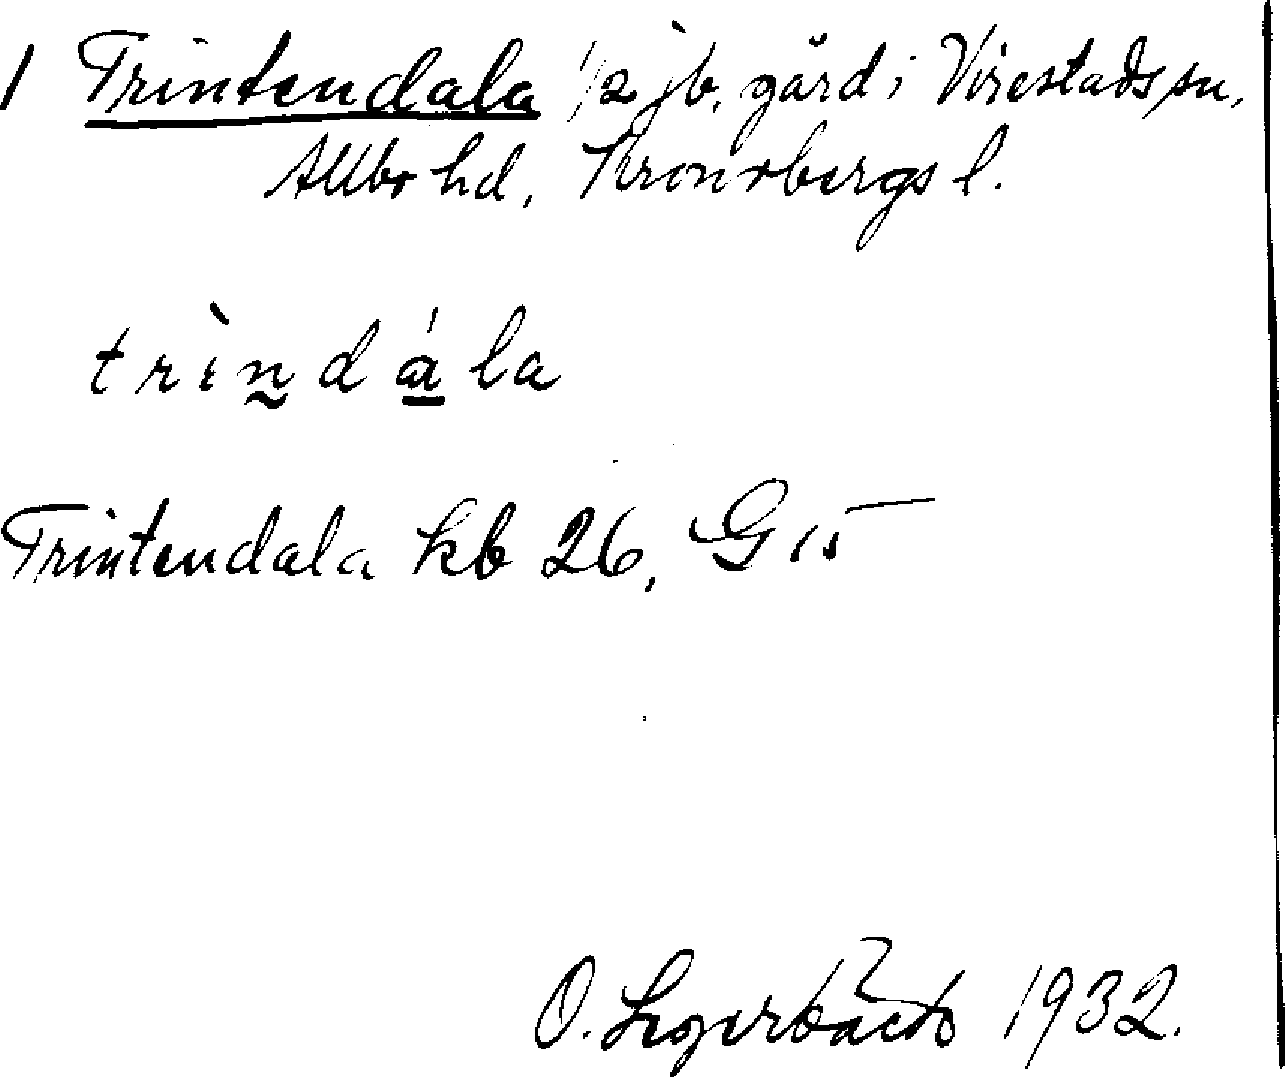 1 Trintendala 1/2 jb. gård i Virestads sn,
Allbo hd, Kronobergs l.
trìndá la
Trintendala kb 26, G 15
O. Segerbäck 1932.